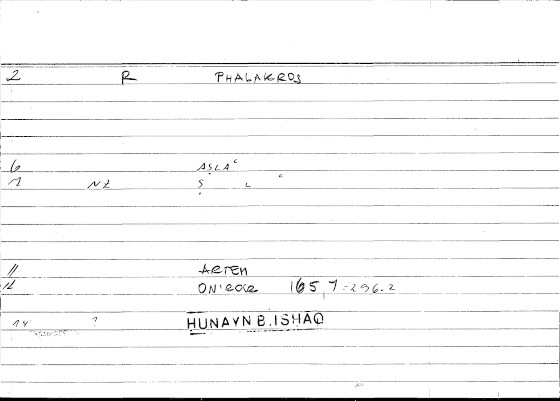 2 R PHALAKROS
6 AṢLAʿ
7 NE Ṣ L ʿ
11 ARTEM
12 ONIROCR 165,7=296.2
14 1 HUNAYN B. ISHAQ